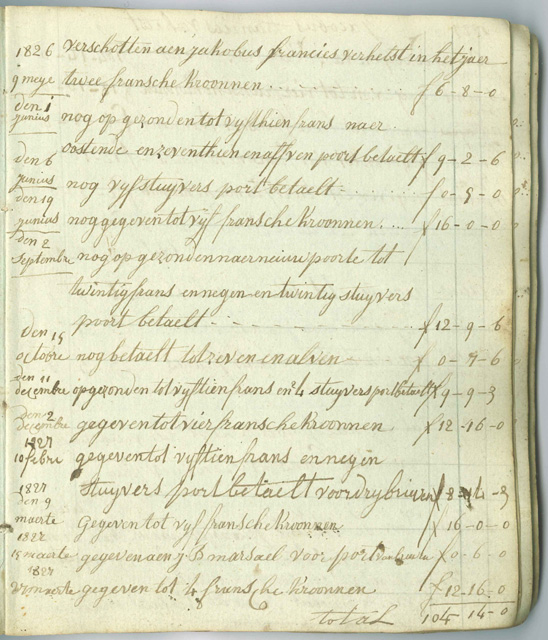 1826 verschotten aen jakobus francies verhelst in het jaer
9 meye twee fransche kroonnen f 6-8-0
den 1 junius nog op gezonden tot vyfthien frans naer
oostende en zeventhien en alfven poort betaelt f 9-2-6
den 6 junius nog vyf stuyvers port betaelt f 0-5-0
den 19 junius nog gegeven tot vyf fransche kroonnen f 16-0-0
den 2 septembre nog op gezonden naer nieuwe poorte tot
twintig frans en negen en twintig stuyvers
poort betaelt f 12-9-6
den 15 octobre nog betaelt tot zeven en alven f 0-9-6
den 11 decembre op gezonden tot vyftien frans en 4 stuyvers port betaelt f 9-9-3
den 2 decembre gegeven tot vier fransche kroonnen f 12-16-0
1827
10 febre gegeven tot vyftien frans en negen
stuyvers port betaelt voor dry brieven f 8-14-3
1827 den 9 maerte gegeven tot vyf fransche kroonnen f 16-0-0
1827
15 maerte gegeven aen J B marsael voor port f 0-6-0
1827
27 maerte gegeven tot 4 fransche kroonnen f 12-16-0
total 104-14-0